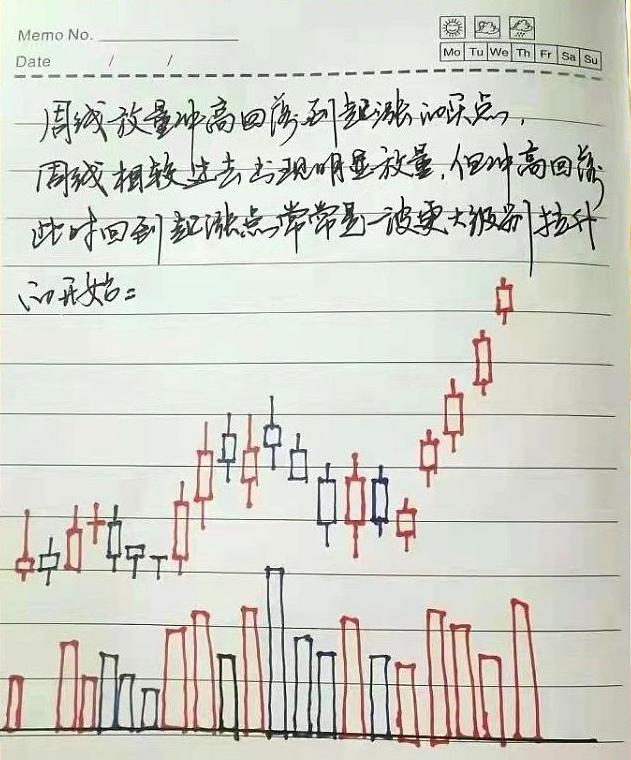 Memo No.
Mo Tu We Th Fr Sa Su
Date / /
周线放量冲高回落到起涨的买点,
周线相较过去出现明显放量,但冲高回落
此时回到起涨点常常是一波更大级别拉升
的开始: